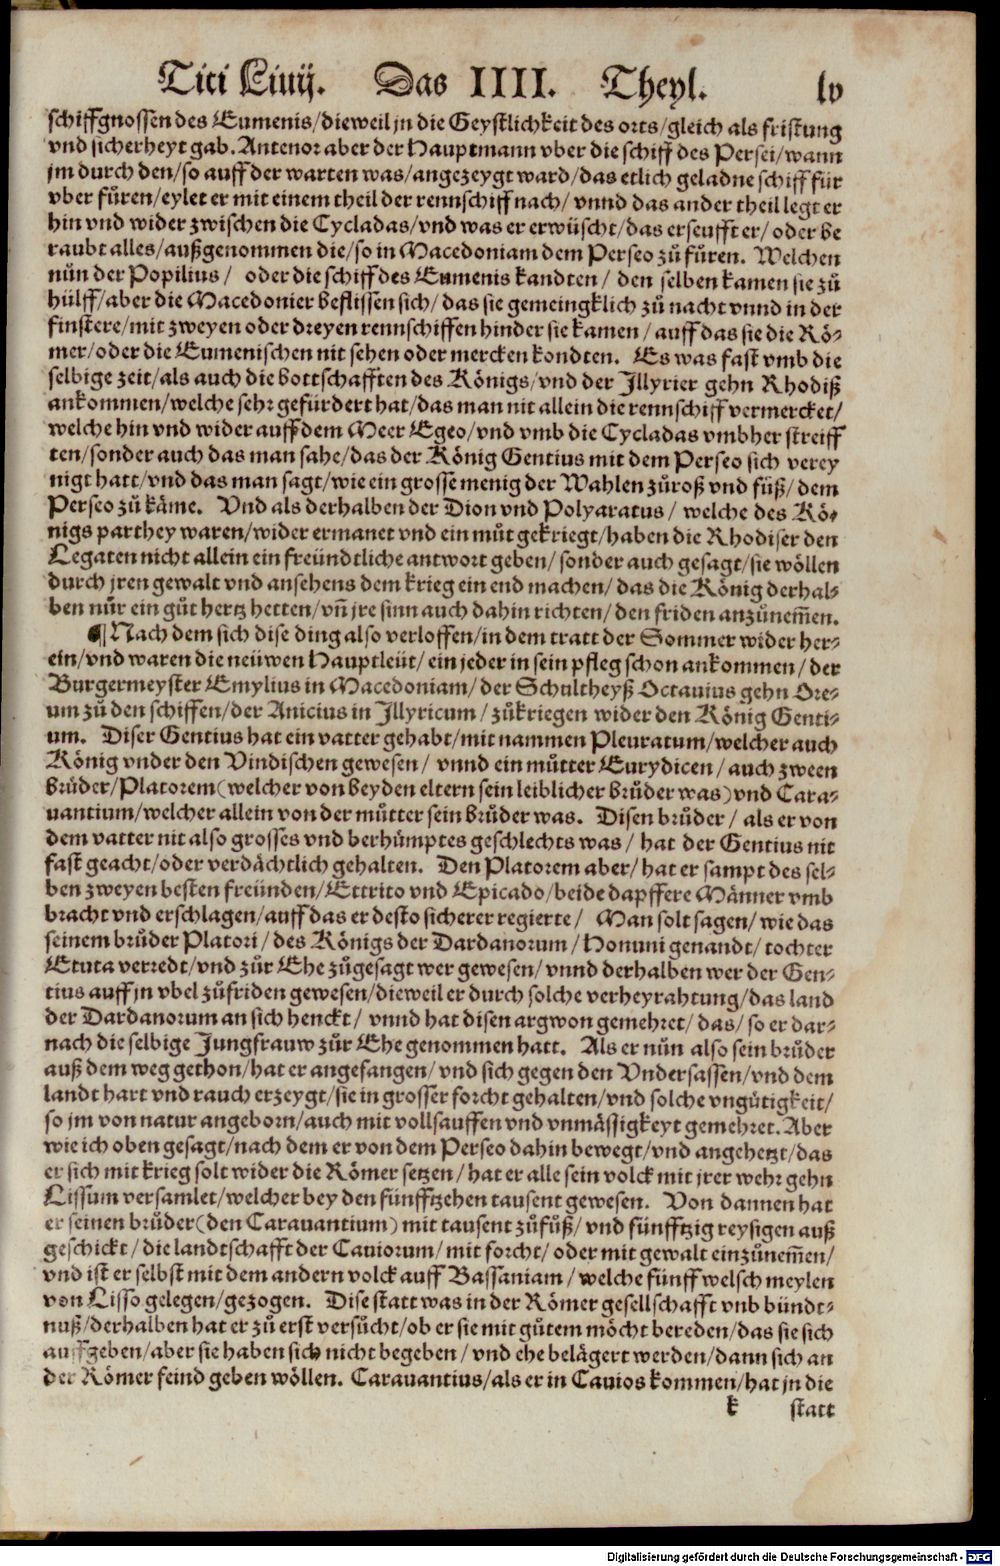 Titi Liuij. Das IIII. Theyl. lv
schiffgnossen des Eumenis/dieweil jn die Geystlichkeit des orts/gleich als fristung
vnd sicherheyt gab. Antenor aber der Hauptmann vber die schiff des Persei/wann
jm durch den/so auff der warten was/angezeygt ward/das etlich geladne schiff für
vber fůren/eylet er mit einem theil der rennschiff nach/vnnd das ander theil legt er
hin vnd wider zwischen die Cycladas/vnd was er erwüscht/das erseufft er/oder be
raubt alles/außgenommen die/so in Macedoniam dem Perseo zů fůren. Welchen
nůn der Popilius/ oder die schiff des Eumenis kandten/ den selben kamen sie zů
hülff/aber die Macedonier beflissen sich/das sie gemeingklich zů nacht vnnd in der
finstere/mit zweyen oder dreyen rennschiffen hinder sie kamen/auff das sie die Rö-
mer/oder die Eumenischen nit sehen oder mercken kondten. Es was fast vmb die
selbige zeit/als auch die bottschafften des Königs/vnd der Jllyrier gehn Rhodiß
ankommen/welche sehr gefürdert hat/das man nit allein die rennschiff vermercket/
welche hin vnd wider auff dem Meer Egeo/vnd vmb die Cycladas vmbher streiff
ten/sonder auch das man sahe/das der König Gentius mit dem Perseo sich verey
nigt hatt/vnd das man sagt/wie ein grosse menig der Wahlen zůroß vnd fůß/dem
Perseo zů käme. Vnd als derhalben der Dion vnd Polyaratus/ welche des Kö-
nigs parthey waren/wider ermanet vnd ein můt gekriegt/haben die Rhodiser den
Legaten nicht allein ein freündtliche antwort geben/sonder auch gesagt/sie wöllen
durch jren gewalt vnd ansehens dem krieg ein end machen/das die König derhal-
ben nůr ein gůt hertz hetten/vñ jre sinn auch dahin richten/den friden anzůnem̃en.
¶ Nach dem sich dise ding also verloffen/in dem tratt der Sommer wider her-
ein/vnd waren die neüwen Hauptleüt/ein jeder in sein pfleg schon ankommen/der
Burgermeyster Emylius in Macedoniam/der Schultheyß Octauius gehn Ore-
um zů den schiffen/der Anicius in Jllyricum/zůkriegen wider den König Genti-
um. Diser Gentius hat ein vatter gehabt/mit nammen Pleuratum/welcher auch
König vnder den Vindischen gewesen/ vnnd ein můtter Eurydicen/auch zween
brůder/Platorem(welcher von beyden eltern sein leiblicher brůder was)vnd Cara-
uantium/welcher allein von der můtter sein brůder was. Disen brůder/ als er von
dem vatter nit also grosses vnd berhümptes geschlechts was/ hat der Gentius nit
fast geacht/oder verdächtlich gehalten. Den Platorem aber/hat er sampt des sel-
ben zweyen besten freünden/Ettrito vnd Epicado/beide dapffere Männer vmb
bracht vnd erschlagen/auff das er desto sicherer regierte/ Man solt sagen/wie das
seinem brůder Platori/des Königs der Dardanorum/Honuni genandt/tochter
Etuta verredt/vnd zůr Ehe zůgesagt wer gewesen/vnnd derhalben wer der Gen-
tius auff jn vbel zůfriden gewesen/dieweil er durch solche verheyrahtung/das land
der Dardanorum an sich henckt/ vnnd hat disen argwon gemehret/das/so er dar-
nach die selbige Jungfrauw zůr Ehe genommen hatt. Als er nůn also sein brůder
auß dem weg gethon/hat er angefangen/vnd sich gegen den Vndersassen/vnd dem
landt hart vnd rauch erzeygt/sie in grosser forcht gehalten/vnd solche vngůtigkeit/
so jm von natur angeborn/auch mit vollsauffen vnd vnmässigkeyt gemehret. Aber
wie ich oben gesagt/nach dem er von dem Perseo dahin bewegt/vnd angehetzt/das
er sich mit krieg solt wider die Römer setzen/hat er alle sein volck mit jrer wehr gehn
Lissum versamlet/welcher bey den fünfftzehen tausent gewesen. Von dannen hat
er seinen brůder(den Carauantium)mit tausent zůfůß/vnd fünfftzig reysigen auß
geschickt/die landtschafft der Cauiorum/mit forcht/oder mit gewalt einzůnem̃en/
vnd ist er selbst mit dem andern volck auff Bassaniam/welche fünff welsch meylen
von Lisso gelegen/gezogen. Dise statt was in der Römer gesellschafft vnb bündt-
nuß/derhalben hat er zů erst versůcht/ob er sie mit gůtem möcht bereden/das sie sich
auffgeben/aber sie haben sich nicht begeben/vnd ehe belägert werden/dann sich an
der Römer feind geben wöllen. Carauantius/als er in Cauios kommen/hat jn die
k statt
Digitalisierung gefördert durch die Deutsche Forschungsgemeinschaft - DFG